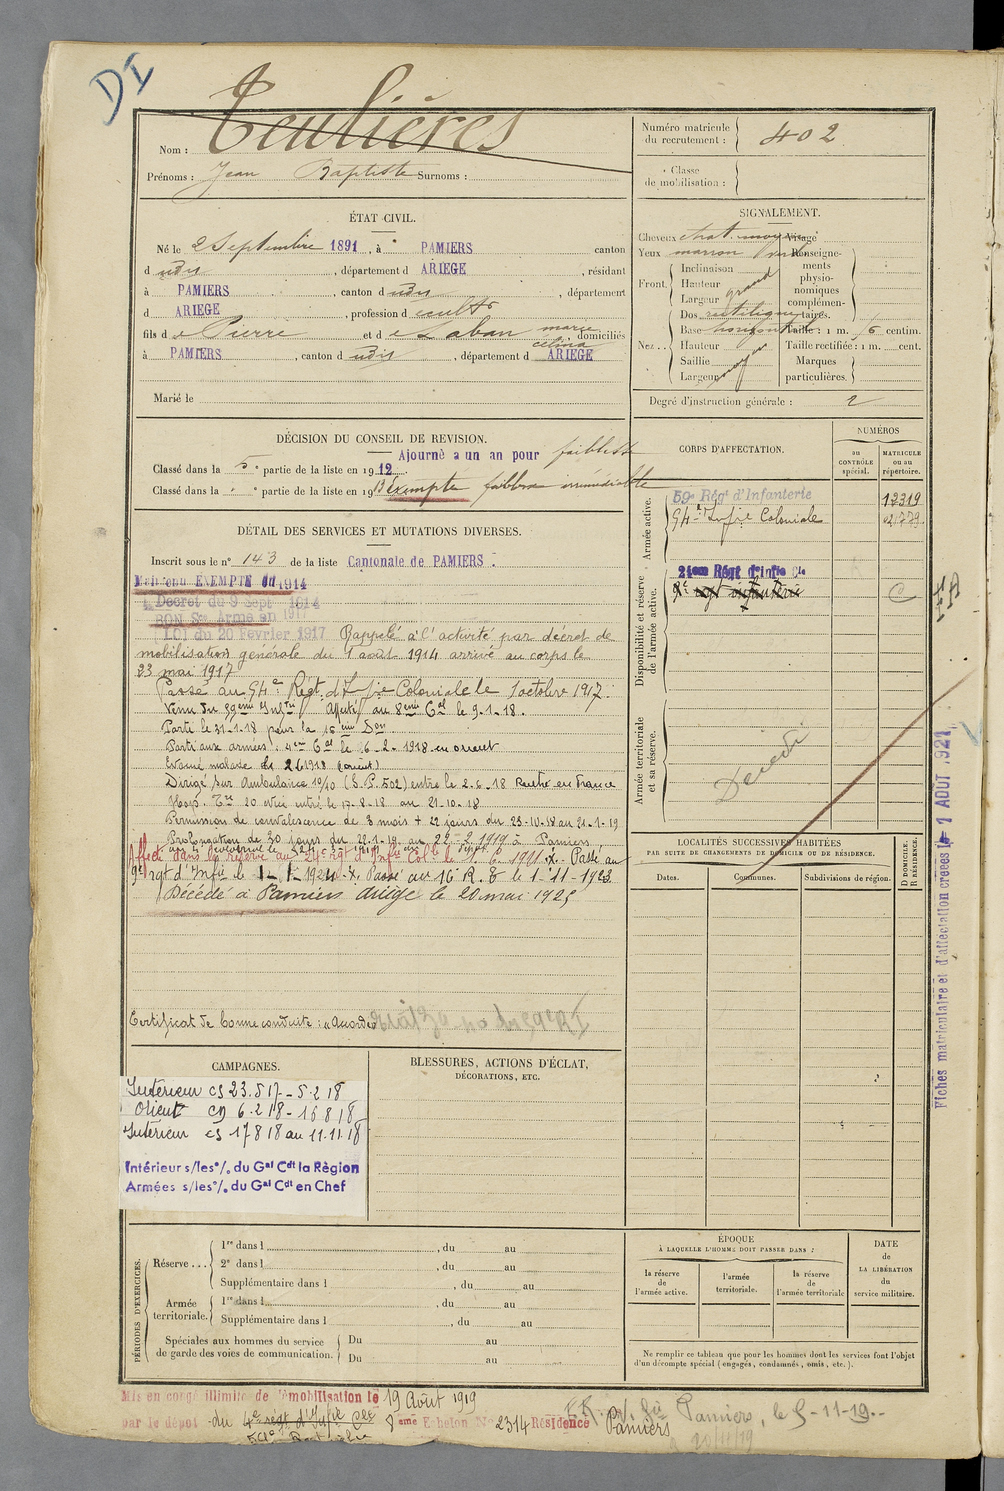 DI
Nom : Teulières
Prénoms : Jean Baptiste Surnoms :
Numéro matricule du recrutement : 402
Classe de mobilisation :
ÉTAT CIVIL.
Né le 2 Septembre 1891, à PAMIERS canton
d udis, département d ARIEGE, résidant
à PAMIERS, canton d udis, département
d ARIEGE, profession d cultr
fils d e Pierre et d e Laban marie celina domiciliés
à PAMIERS, canton d udis, département d ARIEGE
Marié le
SIGNALEMENT.
Cheveux chat. moyen Visage
Yeux marron
Front. Inclinaison
Hauteur
Largeur grand
Nez.. Dos rectiligne
Base horizontal
Hauteur
Saillie
Largeur moyen
Renseignements physionomiques complémentaires.
Taille : 1 m. 6 centim.
Taille rectifiée : 1 m. cent.
Marques particulières.
Degré d'instruction générale : 2
DÉCISION DU CONSEIL DE REVISION.
Ajourné a un an pour faiblesse
Classé dans la 5e partie de la liste en 1912.
Classé dans la e partie de la liste en 1913 exempté faiblesse irrémédiable
DÉTAIL DES SERVICES ET MUTATIONS DIVERSES.
Inscrit sous le n° 143 de la liste Cantonale de PAMIERS
Maintenu EXEMPTÉ en 1914
Décret du 9 Sept 1914
BON Sce Armé en 1917
LOI du 20 Février 1917 Rappelé à l'activité par décret de
mobilisation générale du 1 août 1914 arrivé au corps le
23 mai 1917
Passé au 54e Régt d'Infie Coloniale le 1 octobre 1917.
Venu du 59eme Inftie Affecté au 8eme Cal le 9-1-18.
Parti le 31-1-18 pour la 16eme Don
Parti aux armées. 4eme Cal le 6-2-1918 en orient
Evacué malade le 2 6 1918 (orient)
Dirigé sur Ambulance 10/10 (S.P. 502) entré le 2-6-18 Rentré en France
Hop. Tre 20 entré le 17-8-18 au 21-10-18
Permission de convalescence de 3 mois + 22 jours du 23-10-18 au 21-1-19
Prolongation de 30 jours du 22-1-19 au 22-2-1919 à Pamiers
Affecté dans la réserve au 24e Rgt d'Infie Colle le 1-6-1921 X. Passé au
9e rgt d'Infie le 1-1-1924 X. Passé au 16 R. T le 1-11-1923.
Décédé à Pamiers Ariège le 20 mai 1925
Certificat de bonne conduite : "Accordé"
CORPS D'AFFECTATION.
NUMÉROS
au CONTRÔLE spécial.
MATRICULE ou au répertoire.
Armée active.
59e Régt d'Infanterie 12319
54e Infie Coloniale
Disponibilité et réserve de l'armée active.
24eme Régt d'Infie Cle
9e rgt infanterie
Armée territoriale et sa réserve.
Décédé
LOCALITÉS SUCCESSIVES HABITÉES
PAR SUITE DE CHANGEMENTS DE DOMICILE OU DE RÉSIDENCE.
Dates. Communes. Subdivisions de région. D DOMICILE. R RÉSIDENCE.
Fiches matriculaire et d'affectation créées le 1 AOUT 1921
CAMPAGNES.
Intérieur cs 23.5 17 - 5.2 18
Orient cd 6.2 18 - 16 8 18
Intérieur cs 17 8 18 au 11.11.18
Intérieur s/les °/. du Gal Cdt la Région
Armées s/les °/. du Gal Cdt en Chef
BLESSURES, ACTIONS D'ÉCLAT, DÉCORATIONS, ETC.
PÉRIODES D'EXERCICES.
Réserve ... 1re dans l , du au
2e dans l , du au
Supplémentaire dans l , du au
Armée territoriale. 1re dans l , du au
Supplémentaire dans l , du au
Spéciales aux hommes du service de garde des voies de communication. Du au
Du au
ÉPOQUE
À LAQUELLE L'HOMME DOIT PASSER DANS :
la réserve de l'armée active. l'armée territoriale. la réserve de l'armée territoriale
DATE de LA LIBÉRATION du service militaire.
Ne remplir ce tableau que pour les hommes dont les services font l'objet d'un décompte spécial (engagés, condamnés, omis, etc.).
Mis en congé illimité de démobilisation le 19 Août 1919
par le dépôt du 4e régt d'Infie Cle 8eme Echelon No 2314 Résidence Pamiers
Pamiers, le 5-11-19.